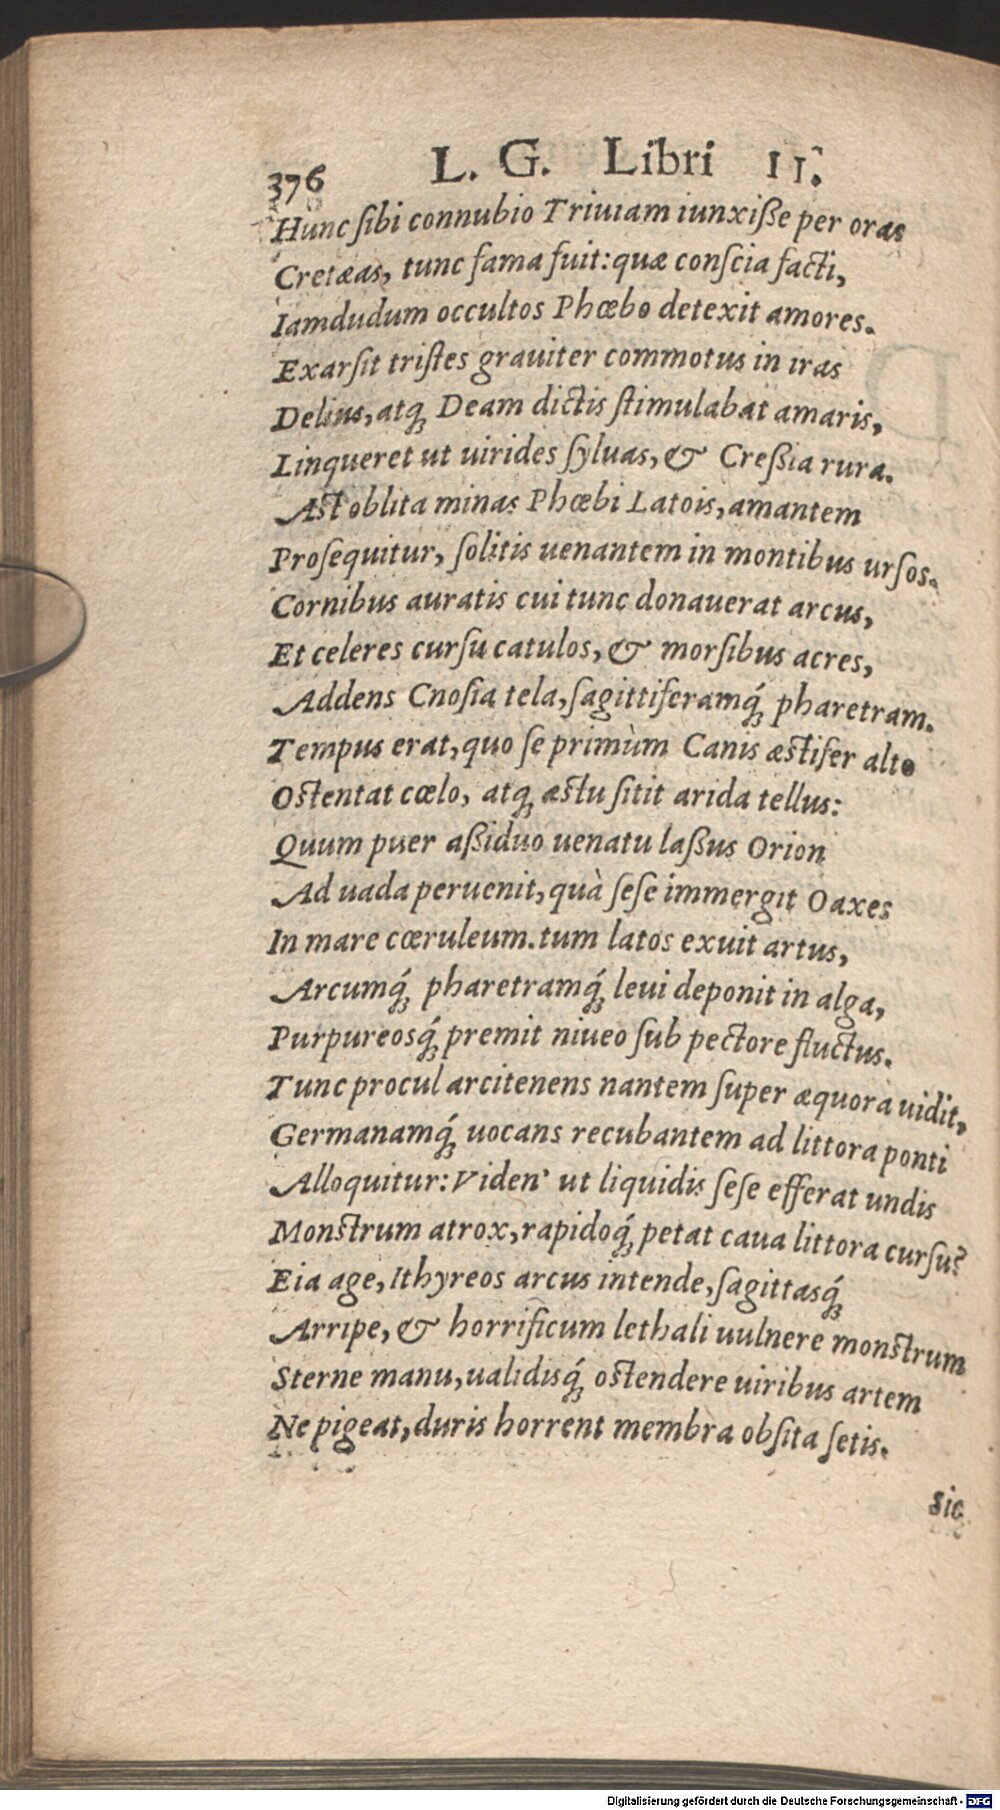 376 L. G. Libri II.
Hunc ſibi connubio Triuiam iunxiße per oras
Cretæas, tunc fama fuit: quæ conſcia facti,
Iamdudum occultos Phœbo detexit amores.
Exarſit triſtes grauiter commotus in iras
Delius, atq; Deam dictis ſtimulabat amaris,
Linqueret ut uirides ſyluas, & Creßia rura.
Aſt oblita minas Phœbi Latois, amantem
Proſequitur, ſolitis uenantem in montibus urſos.
Cornibus auratis cui tunc donauerat arcus,
Et celeres curſu catulos, & morſibus acres,
Addens Cnoſia tela, ſagittiferamq́; pharetram.
Tempus erat, quo ſe primùm Canis æſtifer alto
Oſtentat cœlo, atq; æſtu ſitit arida tellus:
Quum puer aßiduo uenatu laßus Orion
Ad uada peruenit, quà ſeſe immergit Oaxes
In mare cœruleum. tum latos exuit artus,
Arcumq́; pharetramq́; leui deponit in alga,
Purpureosq́; premit niueo ſub pectore fluctus.
Tunc procul arcitenens nantem ſuper æquora uidit,
Germanamq́; uocans recubantem ad littora ponti
Alloquitur: Viden' ut liquidis ſeſe efferat undis
Monſtrum atrox, rapidoq́; petat caua littora curſu?
Eia age, Ithyreos arcus intende, ſagittasq́;
Arripe, & horrificum lethali uulnere monſtrum
Sterne manu, ualidisq́; oſtendere uiribus artem
Ne pigeat, duris horrent membra obſita ſetis.
Sic
Digitalisierung gefördert durch die Deutsche Forschungsgemeinschaft - DFG